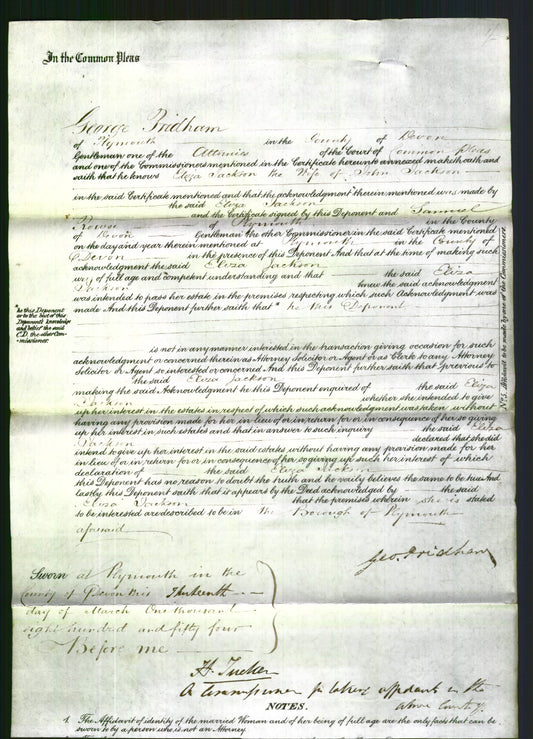 In the Common Pleas
George Pridham
of Plymouth in the County of Devon
Gentleman one of the Attornies of the Court of Common Pleas
and one of the Commissioners mentioned in the Certificate hereunto annexed maketh oath and
saith that he knows Eliza Jackson the Wife of John Jackson
in the said Certificate mentioned and that the acknowledgment therein mentioned was made by
the said Eliza Jackson
and the Certificate signed by this Deponent and Samuel
Rowse of Plymouth in the County
of Devon Gentleman the other Commissioner in the said Certificate mentioned
on the day and year therein mentioned at Plymouth in the County of
Devon in the presence of this Deponent And that at the time of making such
acknowledgment the said Eliza Jackson
was of full age and competent understanding and that the said Eliza
Jackson knew the said acknowledgment
was intended to pass her estate in the premises respecting which such Acknowledgment was
made And this Deponent further saith that * he this Deponent
* As this Deponent
or to the best of this
Deponent's knowledge
and belief the said
C.D. the other Com-
missioner.
is not in any manner interested in the transaction giving occasion for such
acknowledgment or concerned therein as Attorney Solicitor or Agent or as Clerk to any Attorney
Solicitor or Agent so interested or concerned And this Deponent further saith that previous to
the said Eliza Jackson
making the said Acknowledgment he this Deponent enquired of the said Eliza
Jackson whether she intended to give
up her interest in the estates in respect of which such acknowledgment was taken without
having any provision made for her in lieu of or in return for or in consequence of her so giving
up her interest in such estates and that in answer to such inquiry the said Eliza
Jackson declared that she did
intend to give up her interest in the said estates without having any provision made for her
in lieu of or in return for or in consequence of her so giving up such her interest of which
declaration of the said Eliza Jackson
this Deponent has no reason to doubt the truth and he verily believes the same to be true And
lastly this Deponent saith that it appears by the Deed acknowledged by the said
Eliza Jackson that the premises wherein she is stated
to be interested are described to be in the Borough of Plymouth
aforesaid
Geo. Pridham
Sworn at Plymouth in the
County of Devon this Thirteenth
day of March One thousand
eight hundred and fifty four
Before me
H. Tucker
A Commissioner for taking affidavits in the
above County.
NOTES.
1. The Affidavit of identity of the married Woman and of her being of full age are the only facts that can be
sworn to by a person who is not an Attorney.
No. 3. Affidavit to be made by one of the Commissioners.